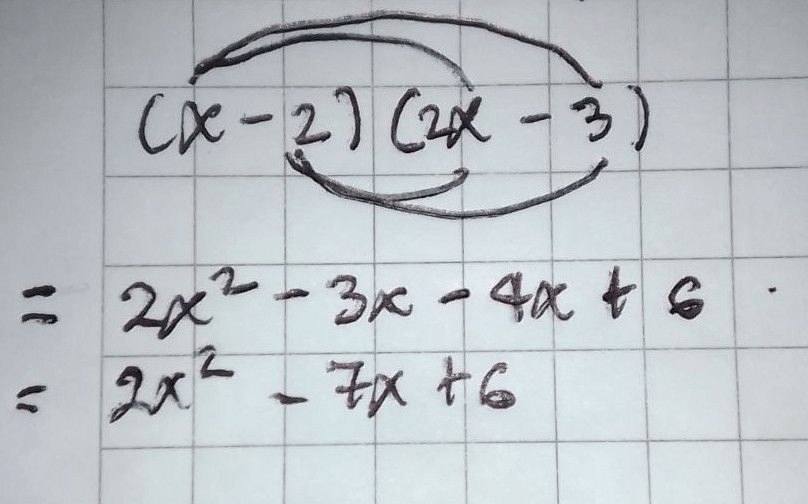 (x - 2) (2x - 3)
= 2x² - 3x - 4x + 6 .
= 2x² - 7x + 6